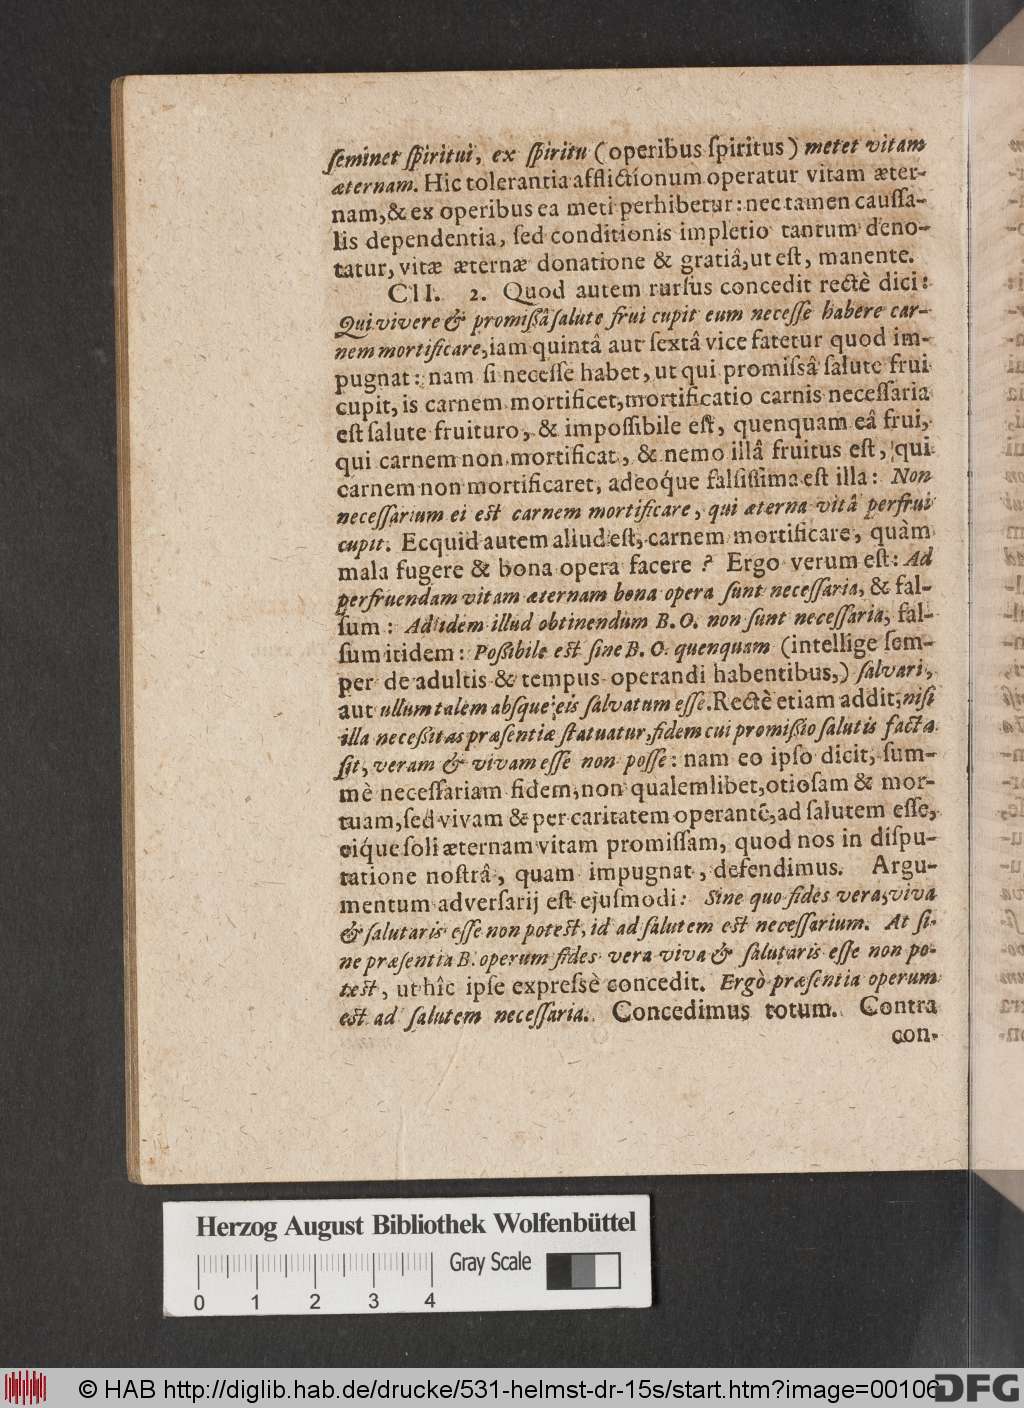 ſeminet ſpiritui, ex ſpiritu (operibus ſpiritus) metet vitam
æternam. Hic tolerantia afflictionum operatur vitam æter-
nam, & ex operibus ea meti perhibetur: nec tamen cauſſa-
lis dependentia, ſed conditionis impletio tantum deno-
tatur, vitæ æternæ donatione & gratiâ, ut eſt, manente.
CII. 2. Quod autem rurſus concedit rectè dici:
Qui vivere & promiſſâ ſalute frui cupit eum neceſſe habere car-
nem mortificare, iam quintâ aut ſextâ vice fatetur quod im-
pugnat: nam ſi neceſſe habet, ut qui promiſsâ ſalute frui
cupit, is carnem mortificet, mortificatio carnis neceſſaria
eſt ſalute fruituro, & impoſſibile eſt, quenquam eâ frui,
qui carnem non mortificat, & nemo illâ fruitus eſt, qui
carnem non mortificaret, adeoq́ue falſiſſima eſt illa: Non
neceſſarium ei eſt carnem mortificare, qui æterna vitâ perfrui
cupit. Ecquid autem aliud eſt, carnem mortificare, quàm
mala fugere & bona opera facere? Ergo verum eſt: Ad
perfruendam vitam æternam bona opera ſunt neceſſaria, & fal-
ſum: Ad idem illud obtinendum B. O. non ſunt neceſſaria, fal-
ſum itidem: Poſſibile eſt ſine B. O. quenquam (intellige ſem-
per de adultis & tempus operandi habentibus,) ſalvari,
aut ullum talem abſque eis ſalvatum eſſe. Rectè etiam addit, niſi
illa neceſſitas præſentiæ ſtatuatur, fidem cui promiſſio ſalutis facta
ſit, veram & vivam eſſe non poſſe: nam eo ipſo dicit, ſum-
mè neceſſariam fidem, non qualemlibet, otioſam & mor-
tuam, ſed vivam & per caritatem operantẽ, ad ſalutem eſſe,
eiq́ue ſoli æternam vitam promiſſam, quod nos in diſpu-
tatione noſtrâ, quam impugnat, defendimus. Argu-
mentum adverſarij eſt ejuſmodi: Sine quo fides vera, viva
& ſalutaris eſſe non poteſt, id ad ſalutem eſt neceſſarium. At ſi-
ne præſentia B. operum fides vera viva & ſalutaris eſſe non po-
teſt, ut hîc ipſe expreſsè concedit. Ergò præſentia operum
eſt ad ſalutem neceſſaria. Concedimus totum. Contra
con-
Herzog August Bibliothek Wolfenbüttel
Gray Scale
0 1 2 3 4
© HAB http://diglib.hab.de/drucke/531-helmst-dr-15s/start.htm?image=00106
DFG